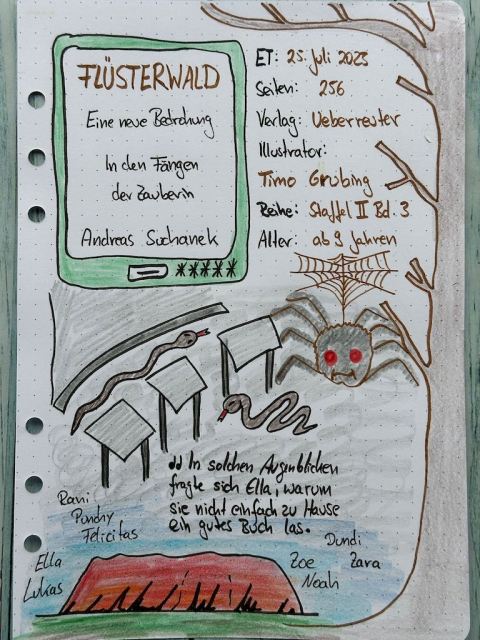 FLÜSTERWALD
Eine neue Bedrohung
In den Fängen
der Zauberin
Andreas Suchanek
ET: 25. Juli 2025
Seiten: 256
Verlag: Ueberreuter
Illustrator:
Timo Grubing
Reihe: Staffel II Bd. 3
Alter: ab 9 Jahren
„In solchen Augenblicken
fragte sich Ella, warum
sie nicht einfach zu Hause
ein gutes Buch las.
Rani
Punchy
Felicitas
Ella
Lukas
Dundi
Zoe Zara
Noah